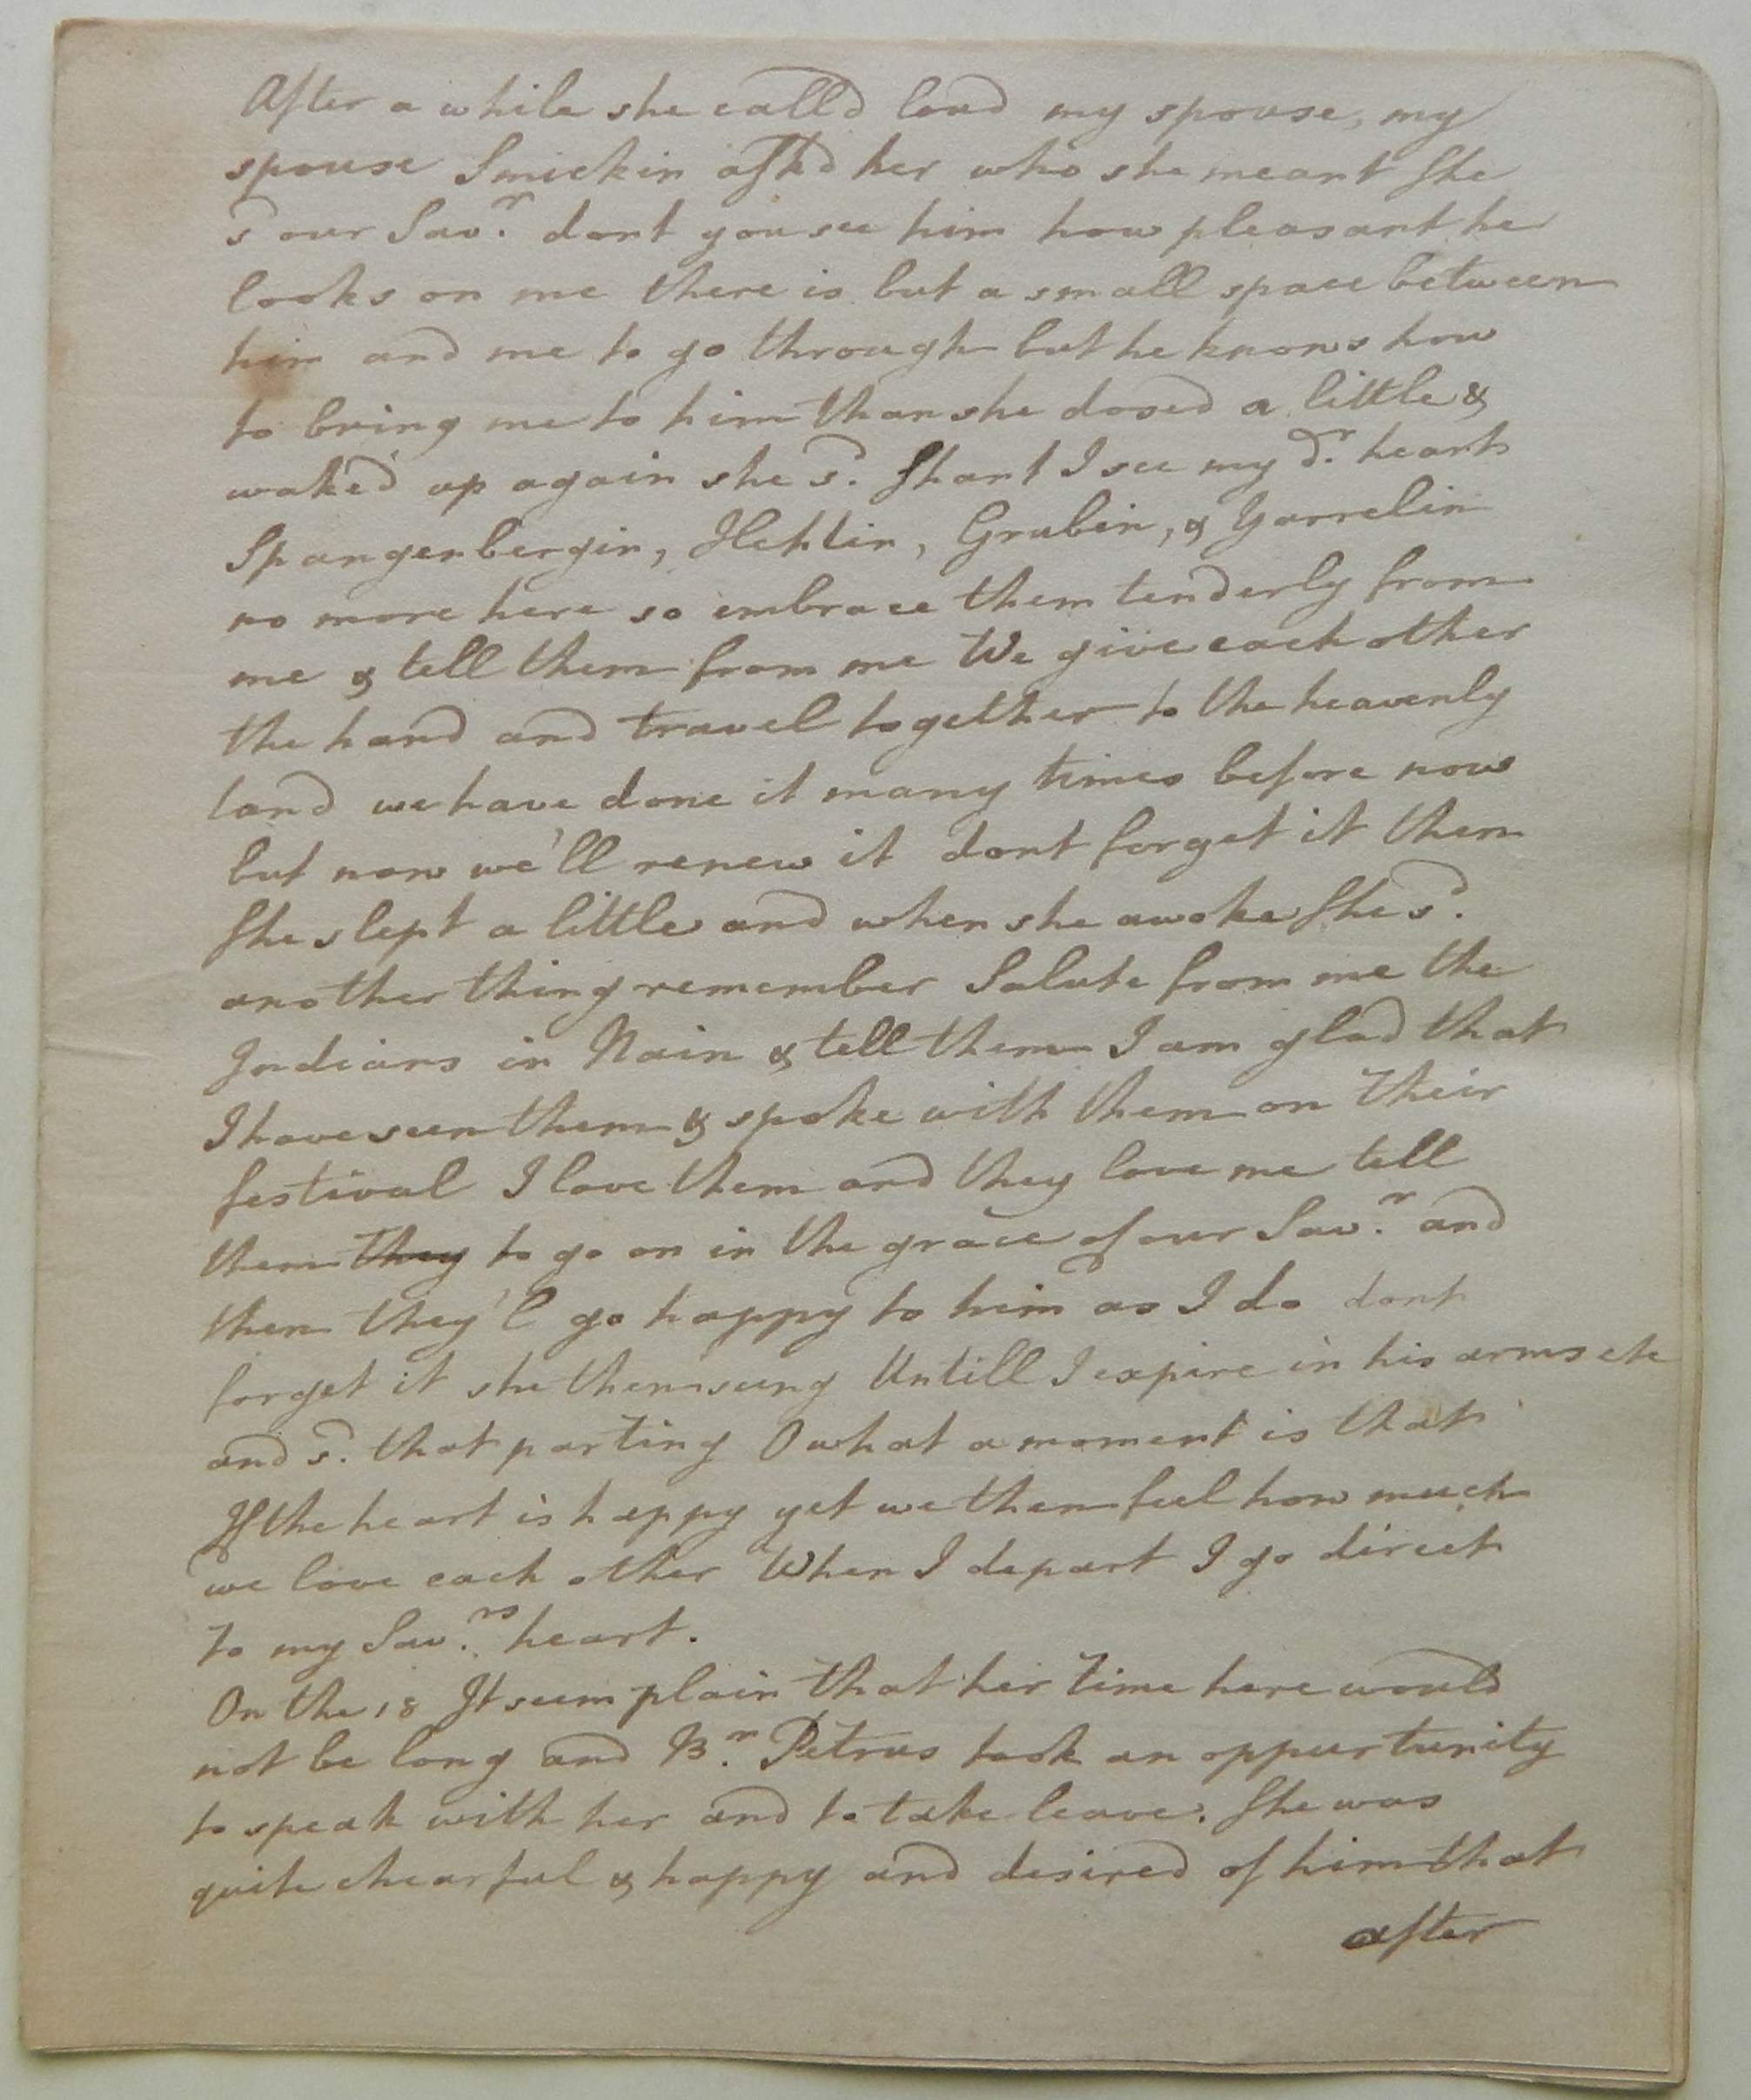 After a while she call'd loud my spouse, my
spouse Smickin ask'd her who she meant She
sd our Savr. dont you see him how pleasant he
looks on me there is but a small space between
him and me to go through but he knows how
to bring me to him than she dosed a little &
waked up again she sd. Shant I see my dr. heart
Spangenbergin, Hehlin, Grubin, & Yarrelin
no more here so embrace them tenderly from
me & tell them from me We give each other
the hand and travel together to the heavenly
land we have done it many times before now
but now we'll renew it dont forget it then
She slept a little and when she awoke She sd.
another thing remember Salute from me the
Indians in Nain & tell them I am glad that
I have seen them & spoke with them on their
festival I love them and they love me tell
them they to go on in the grace of our Savr. and
then they'l go happy to him as I do dont
forget it she then sung Untill I expire in his arms etc
and sd. that parting O what a moment is that
If the heart is happy yet we then feel how much
we love each other When I depart I go direct
to my Savrs. heart.
On the 18 It seem plain that her time here would
not be long and Br. Petrus took an oppurtunity
to speak with her and to take leave. She was
quite chearful & happy and desired of him that
after